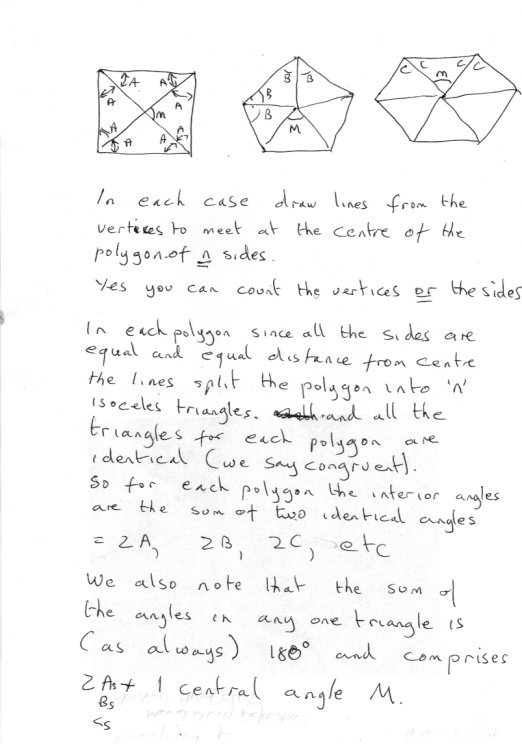 A A A A m A A A A
B B B B M
C C m C C
In each case draw lines from the
vertices to meet at the centre of the
polygon of n sides.
Yes you can count the vertices or the sides
In each polygon since all the sides are
equal and equal distance from centre
the lines split the polygon into 'n'
isoceles triangles. and all the
triangles for each polygon are
identical (we say congruent).
So for each polygon the interior angles
are the sum of two identical angles
= 2A, 2B, 2C, etc
We also note that the sum of
the angles in any one triangle is
(as always) 180° and comprises
2 As + 1 central angle M.
Bs
Cs